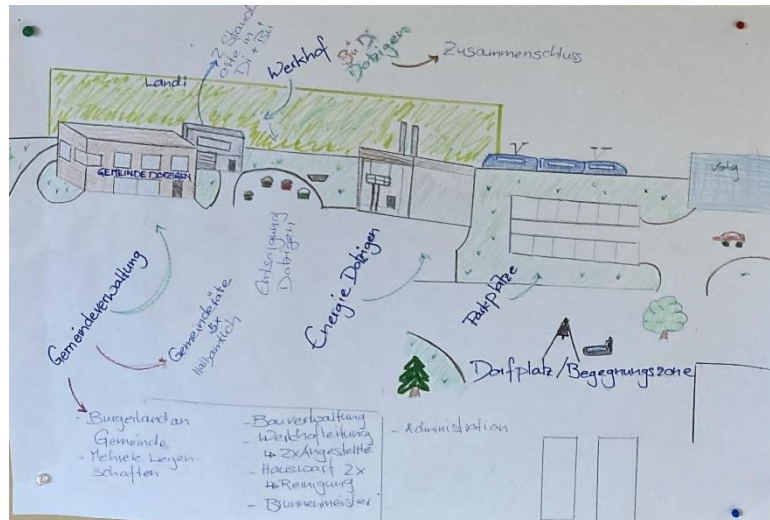 2 Stand
orte in
Di + Bü
Werkhof
Bü Di
Dotzigen
Zusammenschluss
Landi
Volg
GEMEINDE DOTZIGEN
Gemeindeverwaltung
Gemeinderäte
Entsorgung
Dotzigen
Energie Dotzigen
Parkplätze
Dorfplatz/Begegnungszone
- Burgerland an
Gemeinde
- Mehrere Liegen
schaften
- Bauverwaltung
- Werkhofleitung
↳ 2x Angestellte
- Hauswart 2x
↳ Reinigung
- Brunnenmeister
- Administration